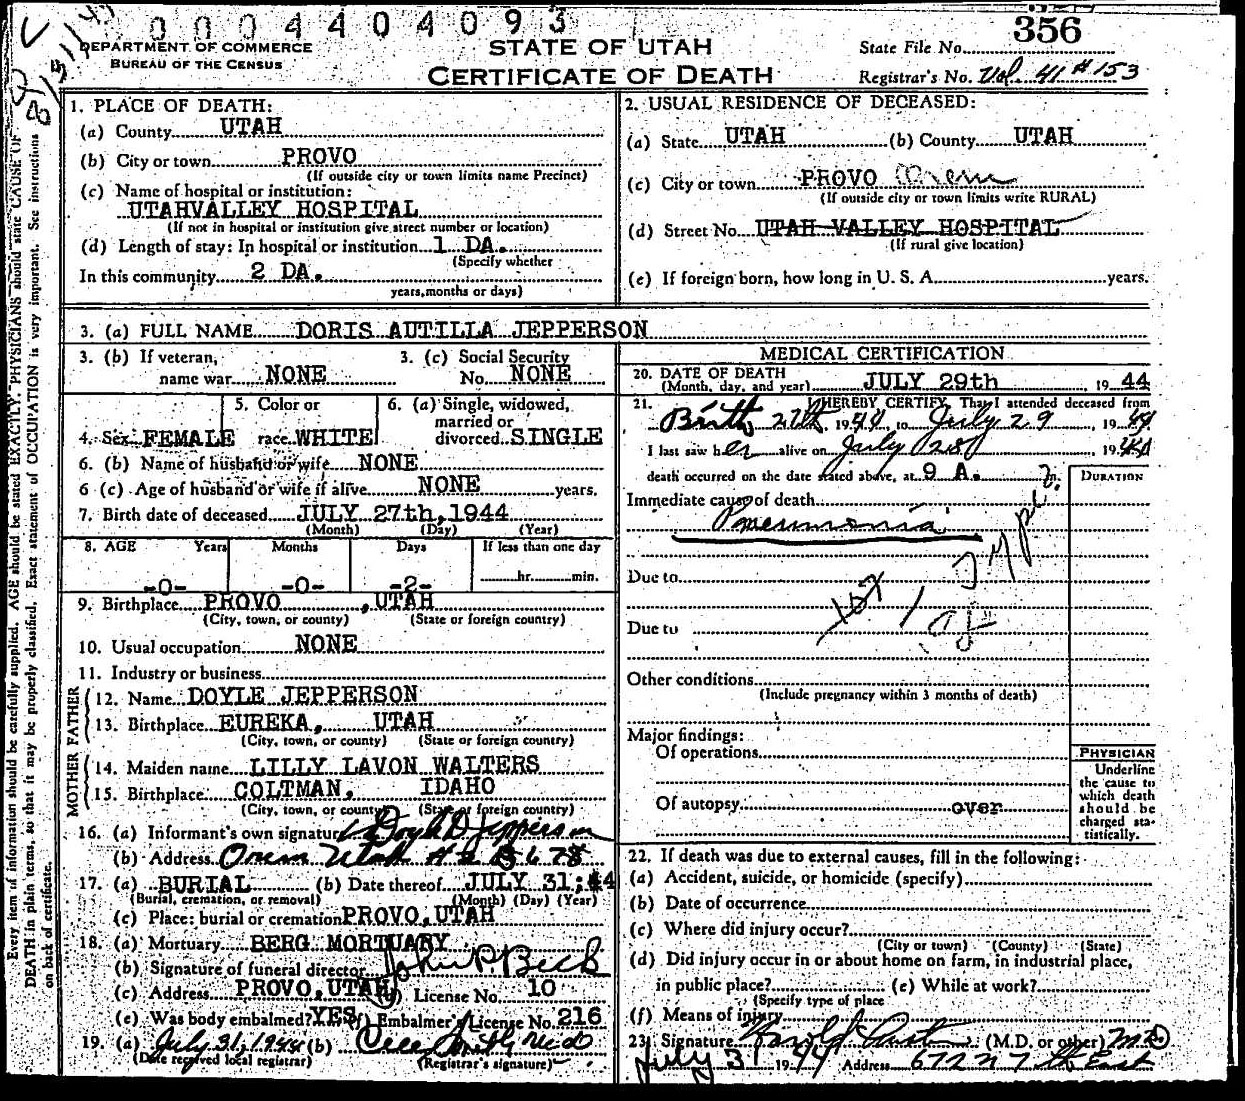 0004404093
356
DEPARTMENT OF COMMERCE
BUREAU OF THE CENSUS
STATE OF UTAH
CERTIFICATE OF DEATH
State File No.
Registrar's No. Vol. 41 #153
Every item of information should be carefully supplied. AGE should be stated EXACTLY. PHYSICIANS should state CAUSE OF
DEATH in plain terms, so that it may be properly classified. Exact statement of OCCUPATION is very important. See instructions
on back of certificate.
1. PLACE OF DEATH:
(a) County UTAH
(b) City or town PROVO
(If outside city or town limits name Precinct)
(c) Name of hospital or institution:
UTAHVALLEY HOSPITAL
(If not in hospital or institution give street number or location)
(d) Length of stay: In hospital or institution 1 DA.
(Specify whether
In this community 2 DA.
years, months or days)
2. USUAL RESIDENCE OF DECEASED:
(a) State UTAH (b) County UTAH
(c) City or town PROVO Orem
(If outside city or town limits write RURAL)
(d) Street No. UTAH VALLEY HOSPITAL
(If rural give location)
(e) If foreign born, how long in U. S. A. years.
3. (a) FULL NAME DORIS AUTILLA JEPPERSON
3. (b) If veteran,
name war NONE
3. (c) Social Security
No. NONE
4. Sex FEMALE
5. Color or
race WHITE
6. (a) Single, widowed,
married or
divorced SINGLE
6. (b) Name of husband or wife NONE
6 (c) Age of husband or wife if alive NONE years.
7. Birth date of deceased JULY 27th, 1944
(Month) (Day) (Year)
8. AGE Years Months Days If less than one day
-0- -0- -2- hr. min.
9. Birthplace PROVO , UTAH
(City, town, or county) (State or foreign country)
10. Usual occupation NONE
11. Industry or business
FATHER
12. Name DOYLE JEPPERSON
13. Birthplace EUREKA, UTAH
(City, town, or county) (State or foreign country)
MOTHER
14. Maiden name LILLY LAVON WALTERS
15. Birthplace COLTMAN, IDAHO
(City, town, or county) (State or foreign country)
16. (a) Informant's own signature Doyle D Jepperson
(b) Address Orem Utah
17. (a) BURIAL (b) Date thereof JULY 31, 44
(Burial, cremation, or removal) (Month) (Day) (Year)
(c) Place: burial or cremation PROVO, UTAH
18. (a) Mortuary BERG MORTUARY
(b) Signature of funeral director
(c) Address PROVO, UTAH (d) License No. 10
(e) Was body embalmed? YES (f) Embalmer's License No. 216
19. (a) July 31, 1944 (b)
(Date received local registrar) (Registrar's signature)
MEDICAL CERTIFICATION
20. DATE OF DEATH
(Month, day, and year) JULY 29th , 19 44
21. I HEREBY CERTIFY, That I attended deceased from
Birth 27th, 1944, to July 29, 1944
I last saw her alive on July 28, 1944
death occurred on the date stated above, at 9 A. m.
DURATION
Immediate cause of death
Pneumonia
Type
Due to
107
Due to
Other conditions
(Include pregnancy within 3 months of death)
Major findings:
Of operations
Of autopsy over
PHYSICIAN
Underline
the cause to
which death
should be
charged sta-
tistically.
22. If death was due to external causes, fill in the following:
(a) Accident, suicide, or homicide (specify)
(b) Date of occurrence
(c) Where did injury occur?
(City or town) (County) (State)
(d) Did injury occur in or about home on farm, in industrial place,
in public place? (e) While at work?
(Specify type of place
(f) Means of injury
23. Signature (M.D. or other) MD
July 31 1944 Address